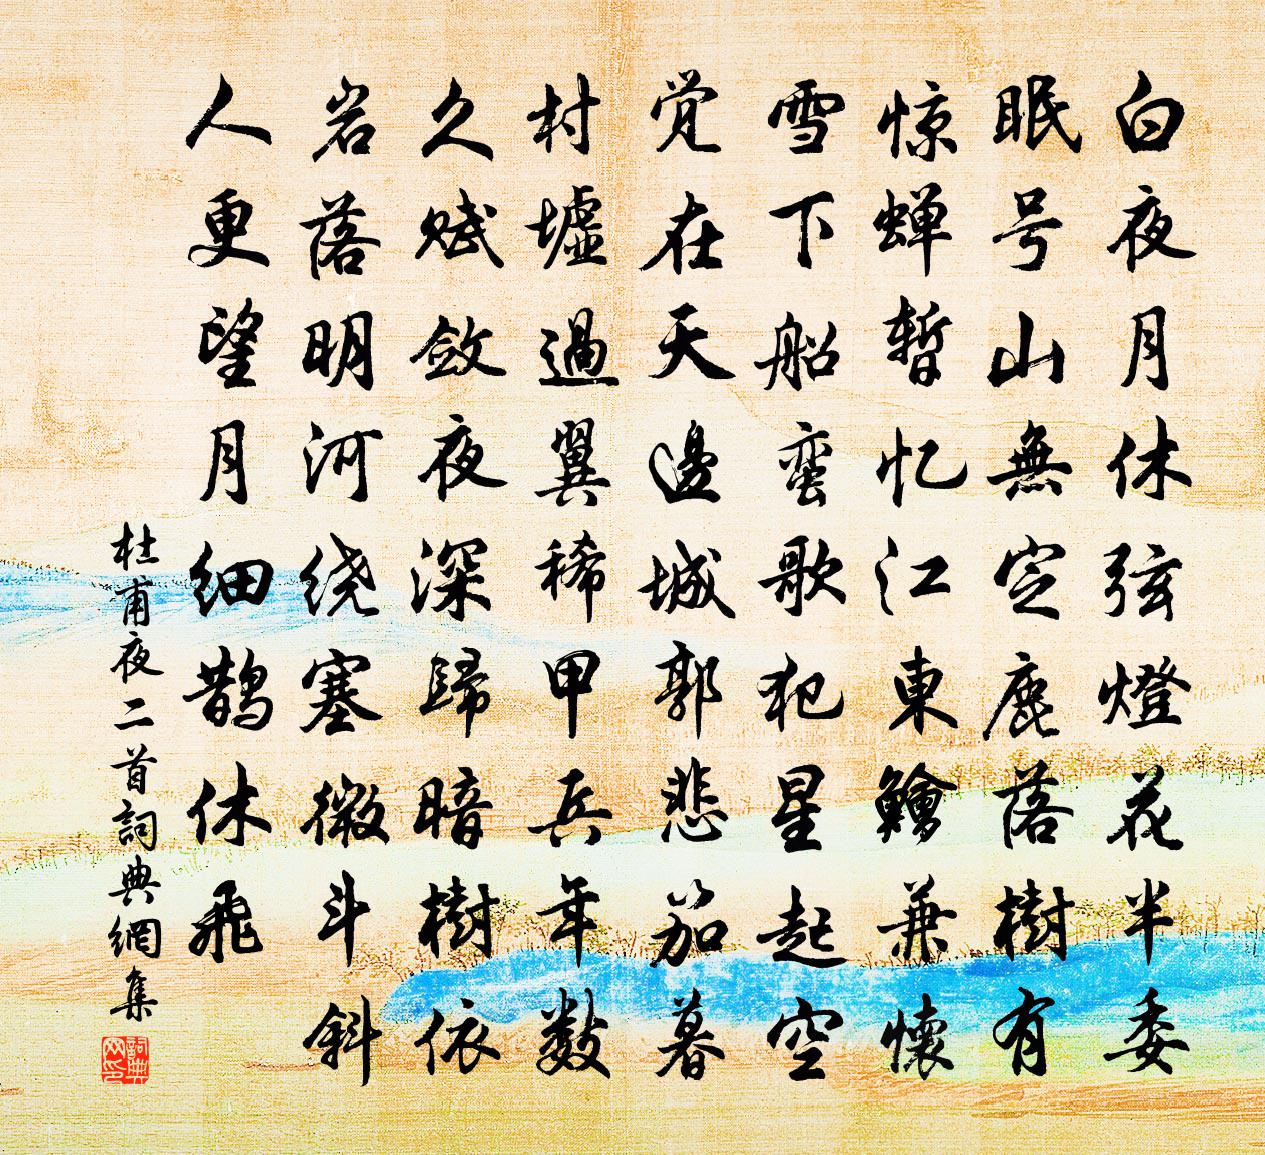 白夜月休弦燈花半委
眠号山無定鹿落樹有
惊蝉暫忆江東鱠兼懷
雪下船蛮歌犯星起空
觉在天邊城郭悲笳暮
村墟過翼稀甲兵年数
久赋敛夜深歸暗樹依
岩落明河绕塞微斗斜
人更望月细鹊休飛
杜甫夜二首詞典網集
詞典网印